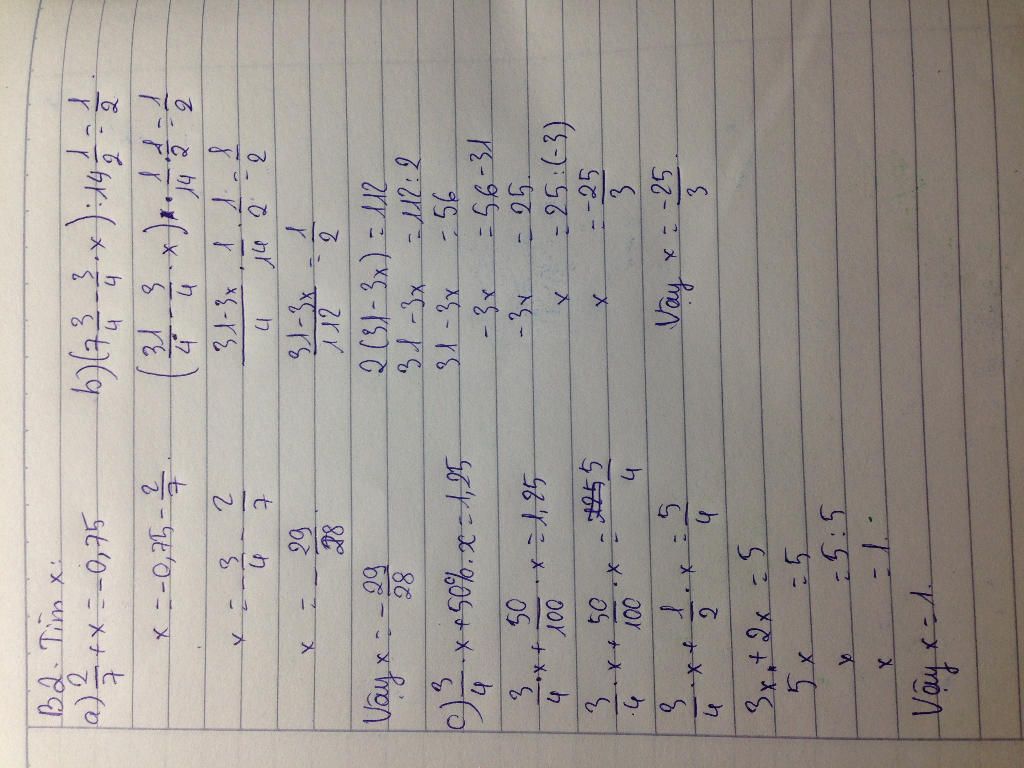 B2. Tìm x:
a) 2/7 + x = -0,75
x = -0,75 - 2/7
x = -3/4 - 2/7
x = -29/28
Vậy x = -29/28
b) (7 3/4 - 3/4 . x) : 14 1/2 = 1/2
(31/4 - 3/4 . x) . 1/14 . 1/2 = 1/2
31-3x/4 . 1/14 . 1/2 = 1/2
31-3x/112 = 1/2
2(31-3x) = 112
31-3x = 112:2
31-3x = 56
-3x = 56-31
-3x = 25
x = 25:(-3)
x = -25/3
Vậy x = -25/3
c) 3/4 . x + 50% . x = 1,25
3/4 . x + 50/100 . x = 1,25
3/4 . x + 50/100 . x = 5/4
3/4 . x + 1/2 . x = 5/4
3x + 2x = 5
5x = 5
x = 5:5
x = 1.
Vậy x = 1.